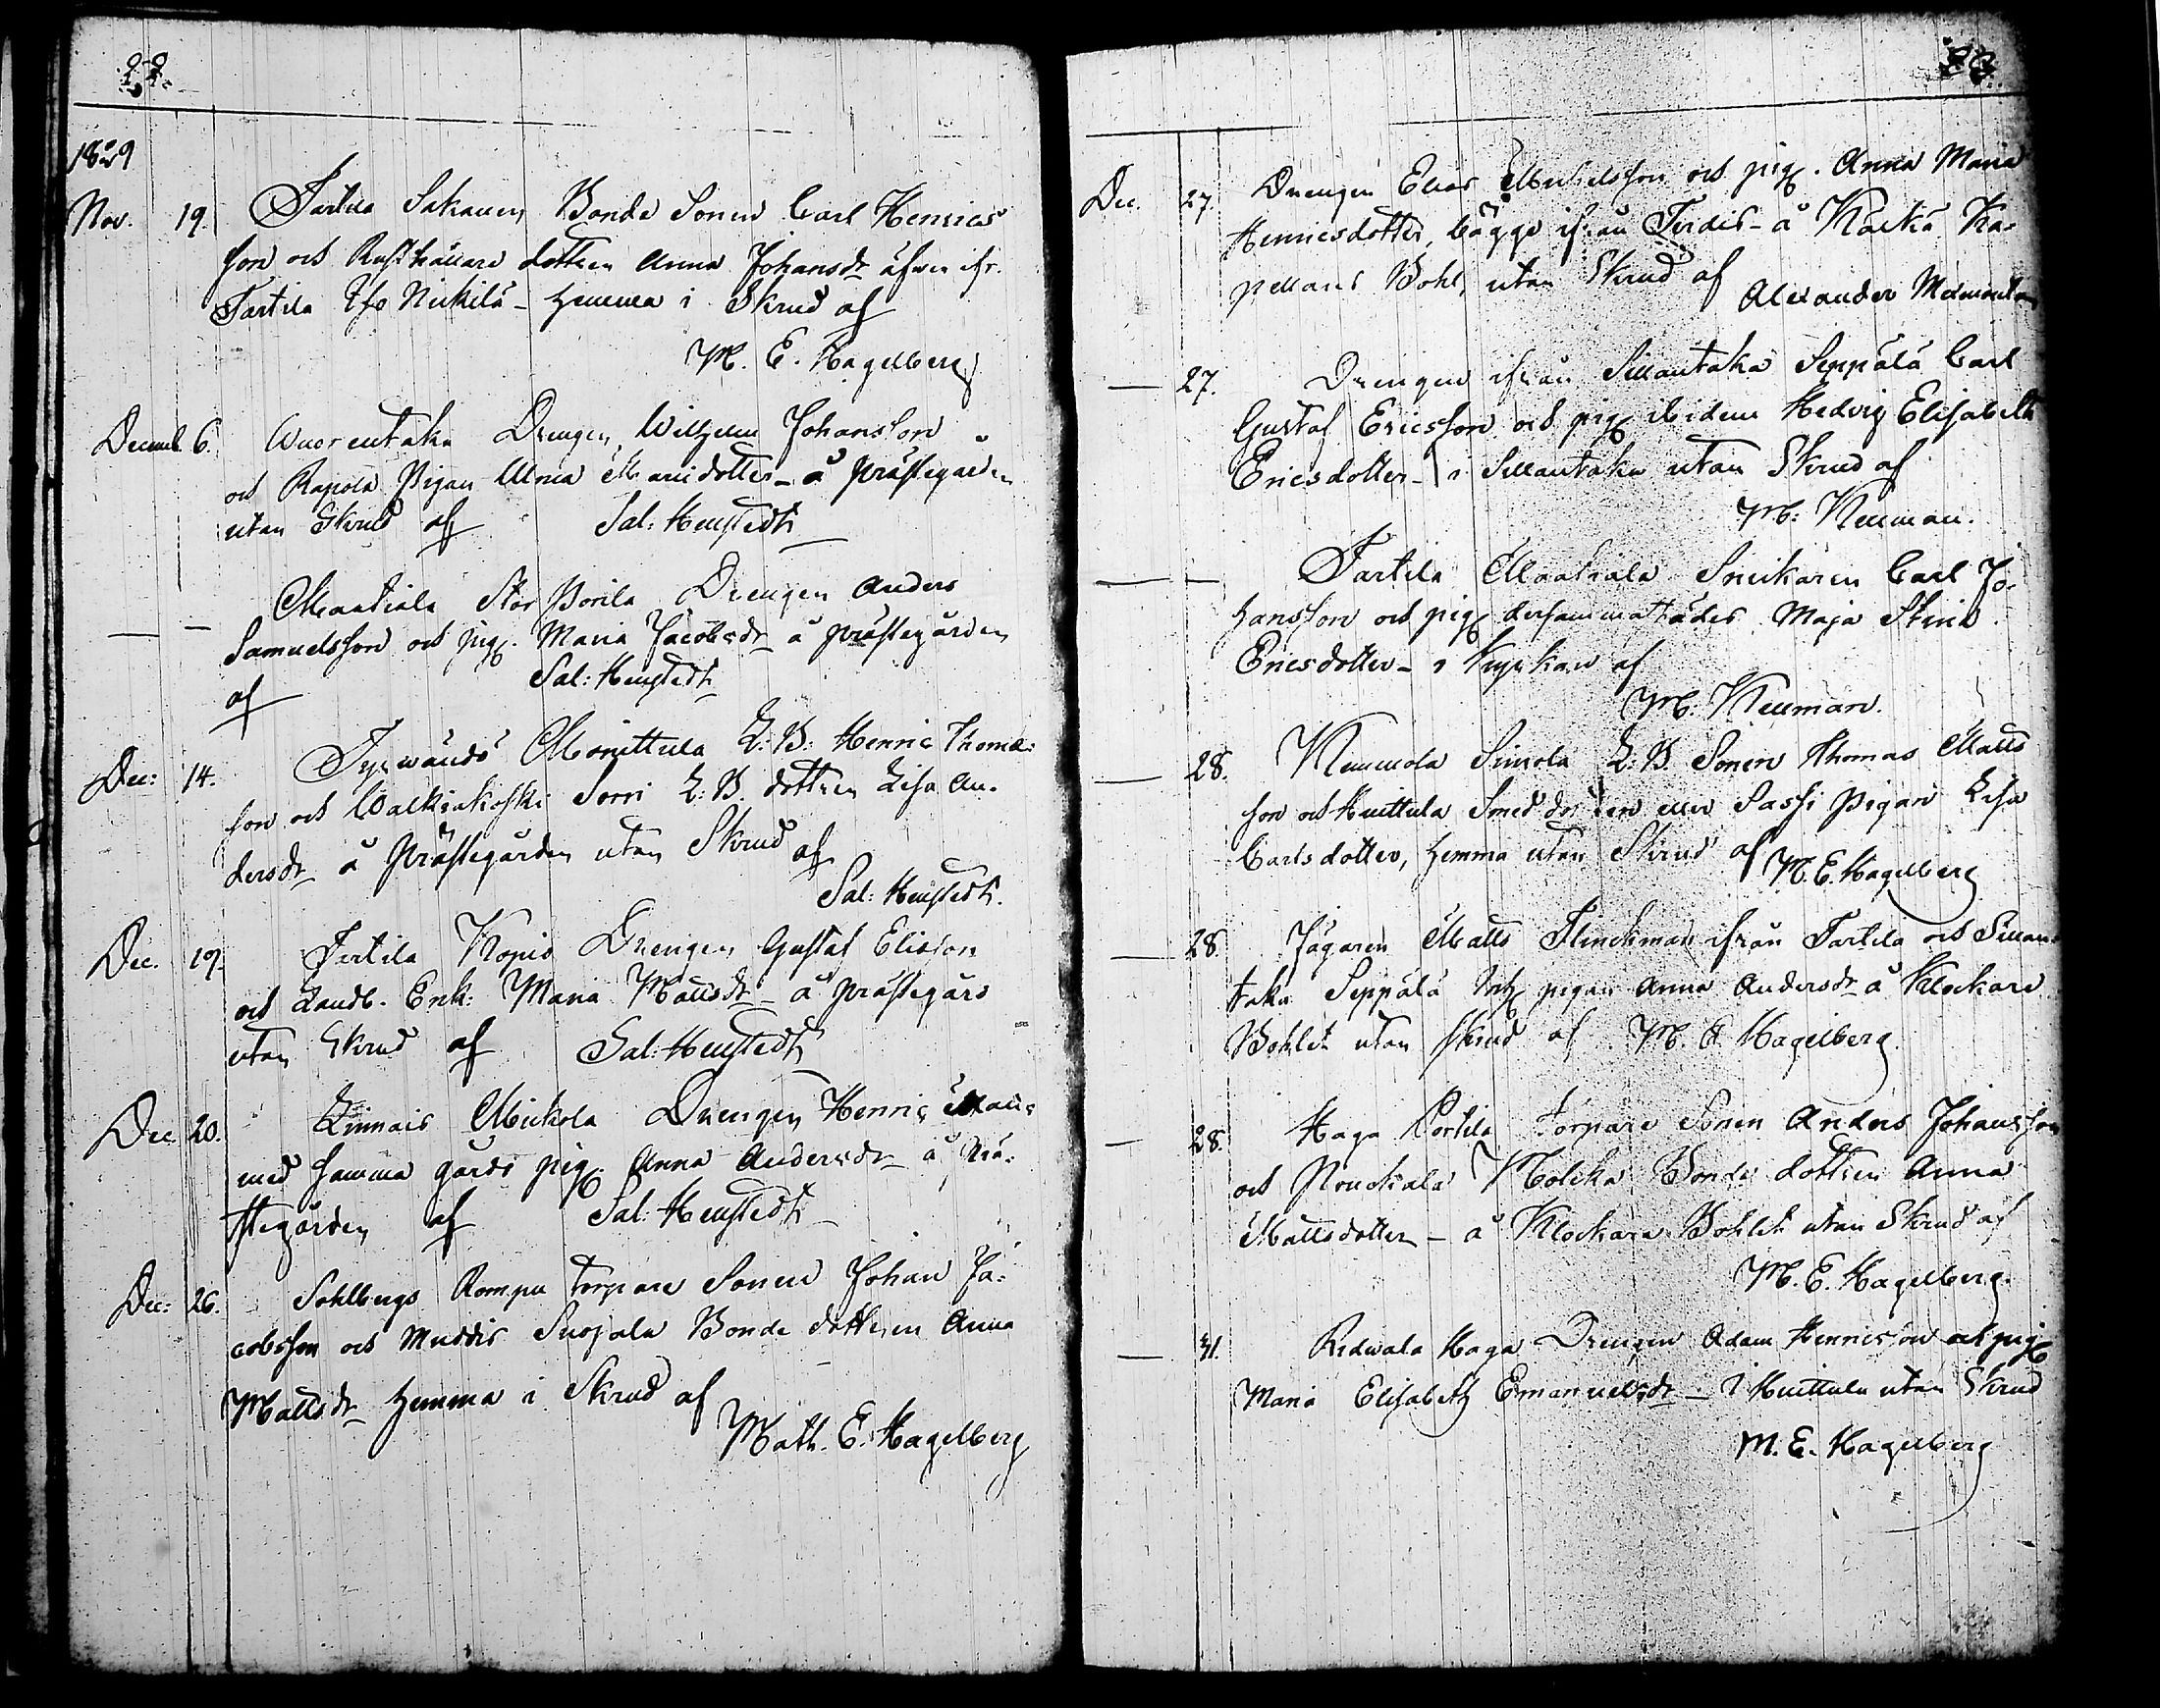 22.
1829
Nov. 19. Tartila Sakauen Bonde Sonen Carl Henrics
son och Rusthållare dottren Anna Johansdr äfven ifr.
Tartila Yfo Nickilä - hemma i Skrud af
M. E. Hagelberg
Decemb. 6. Wuorentaka Drengen Wilhelm Johansson
och Rapola Pigan Ulrica Mariædotter - å Prästegården
utan Skrud af Sal: Henstedt
— — Mantiala Stor Porila Drengen Anders
Samuelsson och pig. Maria Jacobsdr å prästegården
af Sal: Henstedt
Dec: 14. Tyrwändö Monittula L: B: Henric Thomæ-
son och Walkiakoski Sorri L: B. dottren Lisa An-
dersdr å Prästegården utan Skrud af
Sal: Henstedt.
Dec. 19. Tertila Kopis Drengen Gustaf Eliæson
och Landb. Enk: Maria Mattsdr - å prästegård
utan Skrud af Sal: Henstedt
Dec. 20. Linnais Mickola Drengen Henric
med samma gårds pig. Anna Andersdr å Prä-
stegården af Sal: Henstedt
Dec: 26. Sohlbergs Rompu torpare Sonen Johan Ja-
cobsson och Muddis Suojala Bonde dottren Anna
Mattsdr hemma i Skrud af
Math. E. Hagelberg
23.
Dec. 27. Drengen Elias Michelsson och pig. Anna Maria
Henricsdotter, bägge ifrån Terdis - å Kaiká Ka-
pellans Bohl, utan Skrud af Alexander
— 27. Drengen ifrån Sillantaka Seppälä Carl
Gustaf Ericsson och pig ibidem Hedvig Elisabeth
Ericsdotter - i Sillantaka utan Skrud af
M: Neuman.
— — Tartila Maakiala Snickaren Carl Jo-
hansson och pig dersammastädes Maja Stina
Ericsdotter - i Kyrkan af
M: Neuman.
— 28. Nummola Simola L: B. Sonen Thomas Matts
son och Huittula Smed dottren Sassi Pigan Lisa
Carlsdotter, hemma utan Skrud af M. E. Hagelberg
— 28. Jägaren Matts Flinckman ifrån Tartila och Sillan-
taka Seppälä pigan Anna Andersdr å Klockare
Bohlet utan skrud af M. E Hagelberg.
— 28. Haga Portila Torpare Sonen Anders Johansson
och Roukiala Bonde dottren Anna
Mattsdotter - å Klockare Bohlet utan Skrud af
M. E. Hagelberg.
— 31. Ridvala Haga Drengen Adam Henricson och pig
Maria Elisabeth Emanuelsdr - i Huittula utan Skrud
M. E. Hagelberg